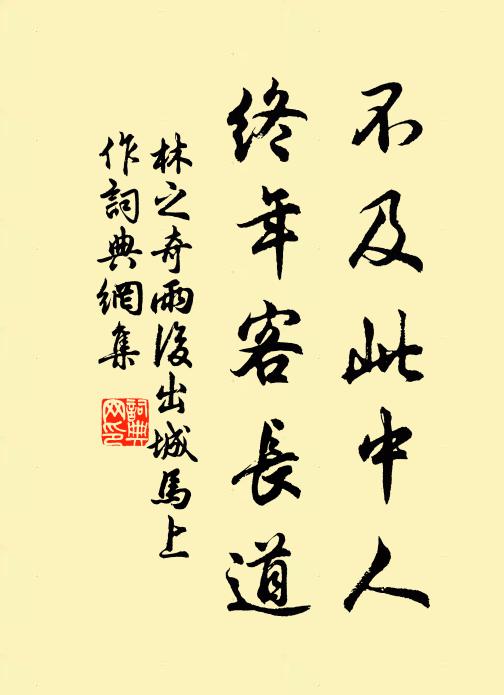 不及此中人
終年客長道
林之奇雨後出城馬上
作詞典網集
詞典
网印